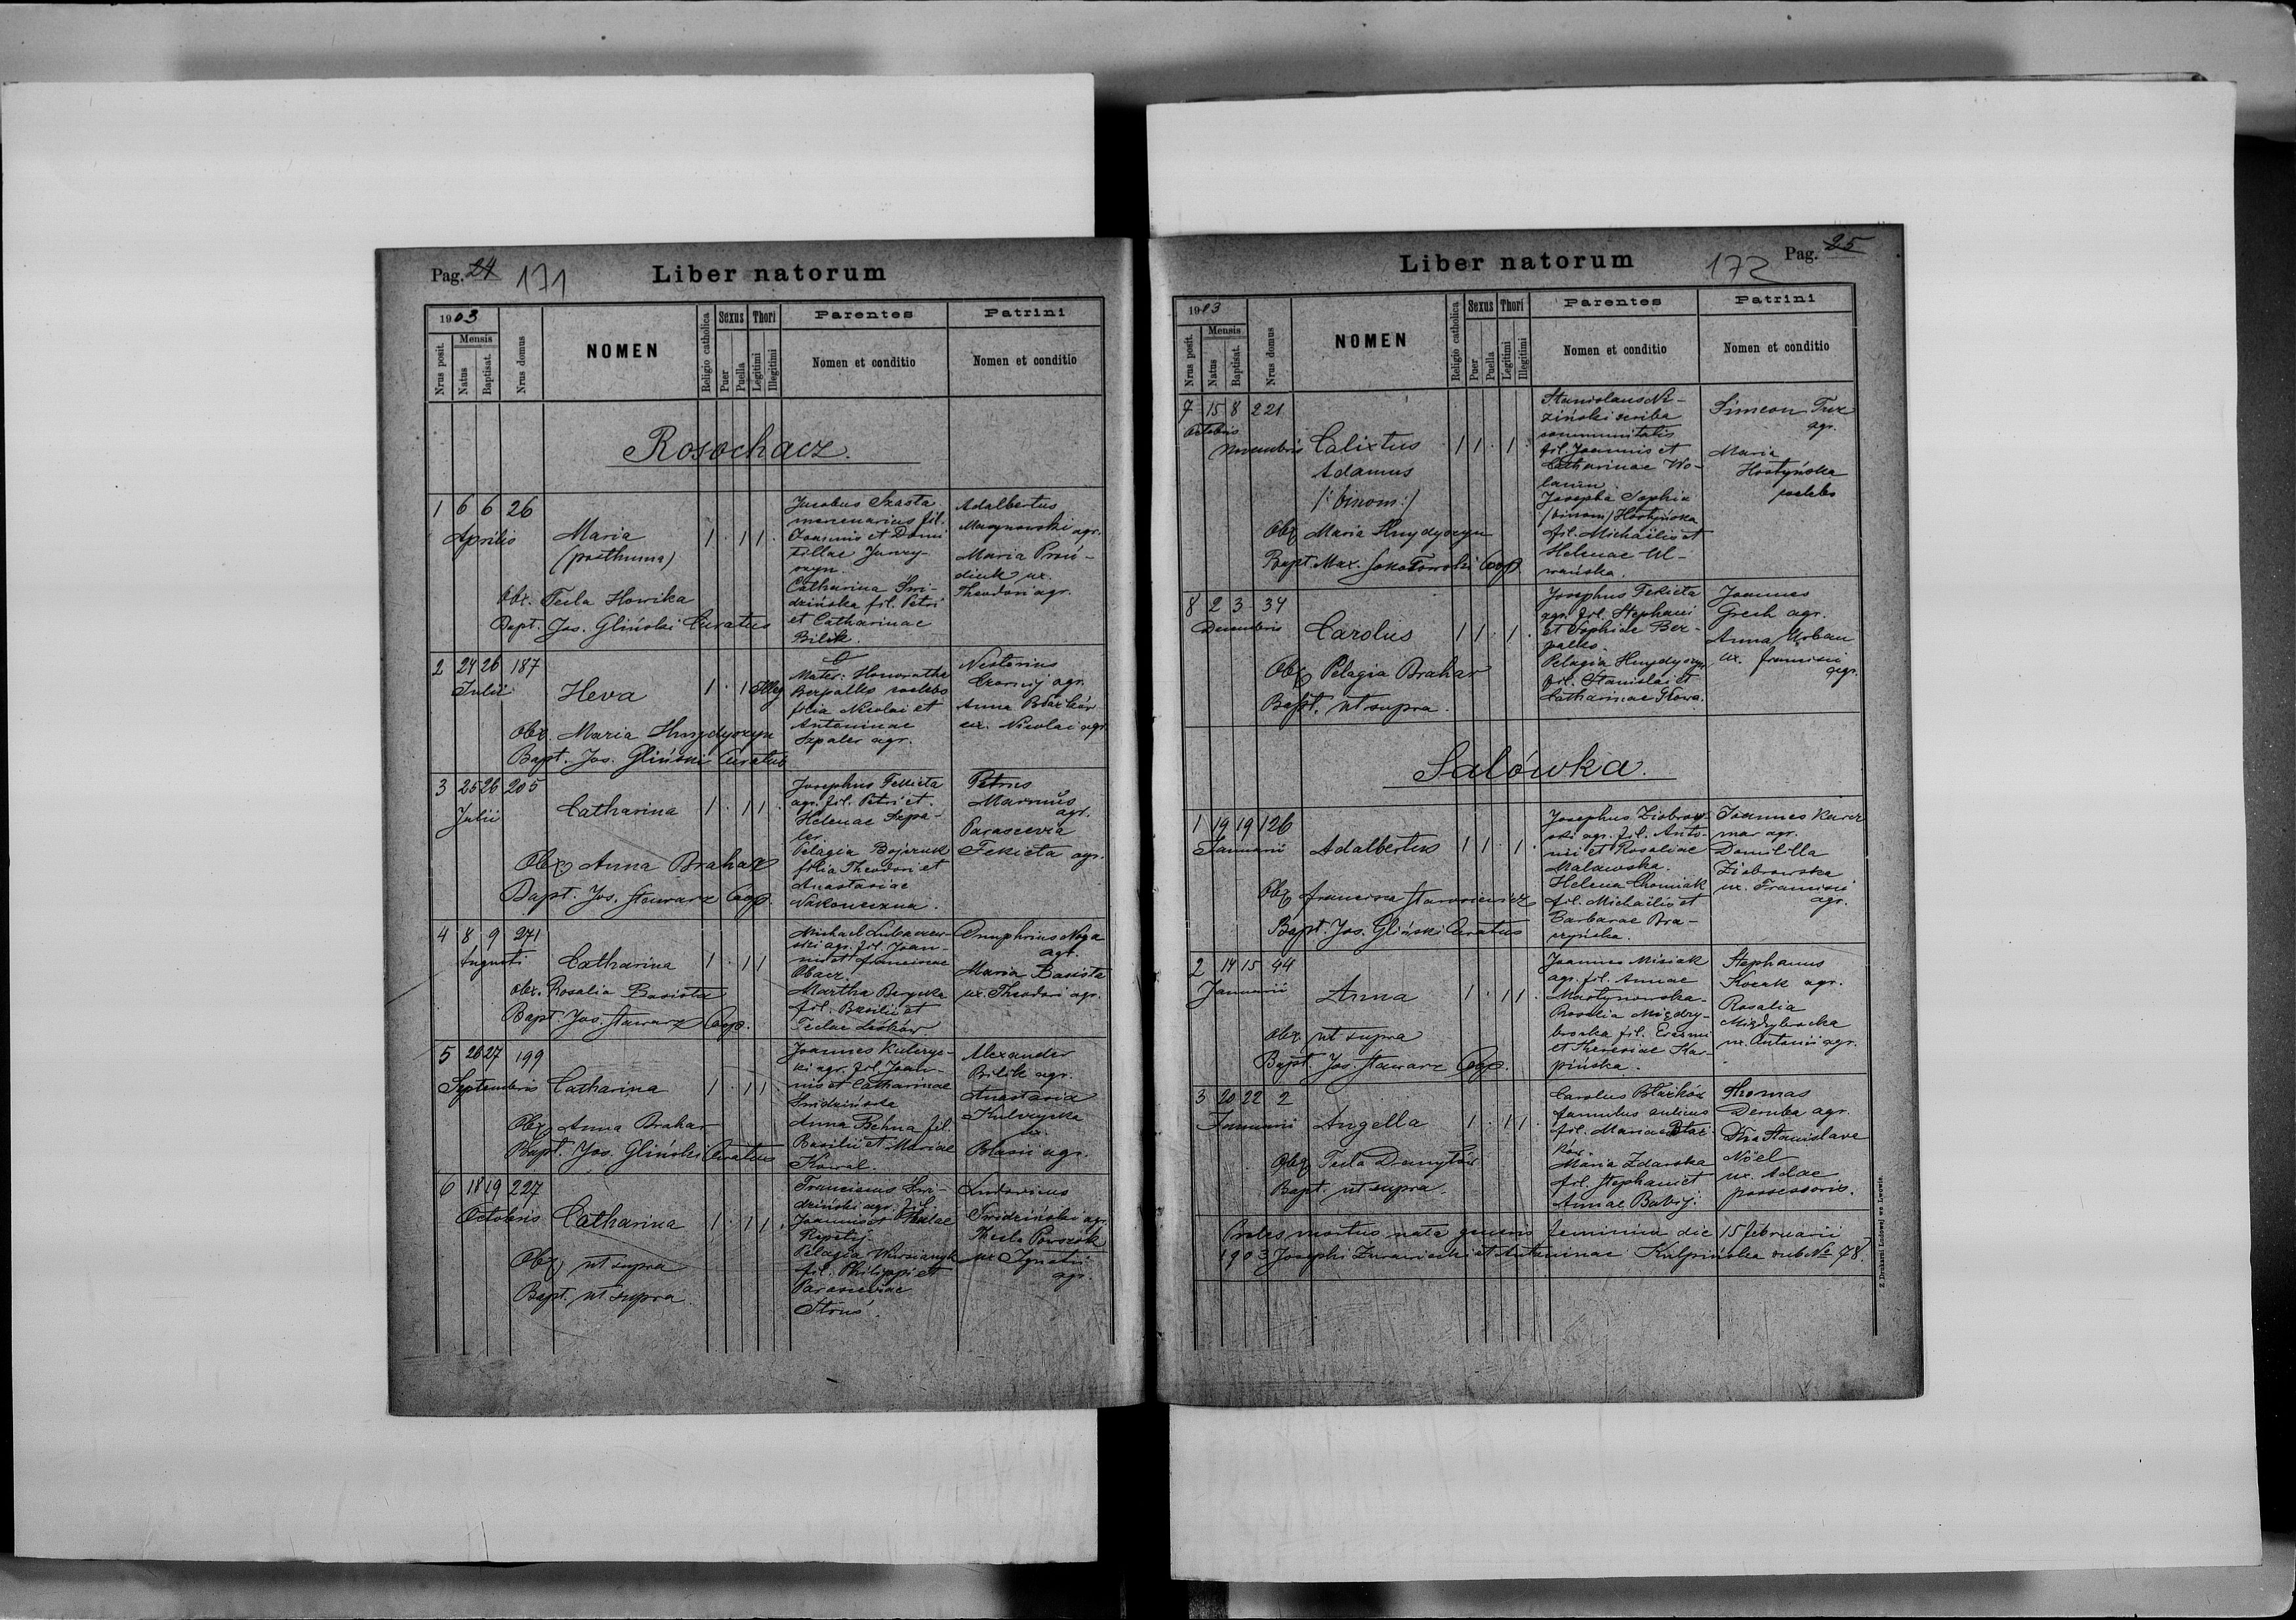 Pag. 24 171 Liber natorum
1903
Nrus posit.
Mensis
Natus
Baptisat.
Nrus domus
NOMEN
Religio catholica
Sexus
Puer
Puella
Thori
Legitimi
Illegitimi
Parentes
Nomen et conditio
Patrini
Nomen et conditio
Rosochacz.
1 6 6 26
Aprilis
Maria
(posthuma)
1 . 1 1 .
Obx. Tecla Howika
Bapt. Jos. Gliński Curatus
Jacobus Szasta
mercenarius fil.
Joannis et Domi
cillae
Catharina Świ-
dzińska fil. Petri
et Catharinae
Bilik.
Adalbertus
agr.
Maria
ux.
Theodori agr.
2 24 26 187
Julii
Heva
1 . 1 Illeg
Obx. Maria Hnydyszyn
Bapt. Jos. Gliński Curatus
Mater: Honoratha
Berpalko coelebs
filia Nicolai et
Antoninae
Szpaler agr.
Nestorius
Czornyj agr.
Anna Błażków
ux. Nicolai agr.
3 25 26 205
Julii
Catharina
1 . 1 1 .
Obx. Anna Brahar
Bapt. Jos. Stawarz Coop.
Josephus Fekieta
agr. fil. Petri et
Helenae Szpa-
ler
Pelagia Bojczuk
filia Theodori et
Anastasiae
Nakoneczna.
Petrus
agr.
Parascevia
Fekieta agr.
4 8 9 271
Augusti
Catharina
1 . 1 1
Obx. Rosalia Basista
Bapt. Jos. Stawarz Coop.
Michael
ski agr. fil. Joan-
nis et Franciscae
Obacz
Martha
fil. Basilii et
Teclae
Onuphrius Noga
agr.
Maria Basista
ux. Theodori agr.
5 26 27 199
Septembris
Catharina
1 . 1 1 .
Obx. Anna Brahar
Bapt. Jos. Gliński Curatus
Joannes Kulczyc-
ki agr. fil. Joan-
nis et Catharinae
Świdzińska
Anna Behna fil.
Basilii et Mariae
Kowal.
Alexander
Bilik agr.
Anastasia
Kulczycka
ux.
Blasii agr.
6 18 19 227
Octobris
Catharina
1 . 1 1 .
Obx. ut supra
Bapt. ut supra
Franciscus Świ-
dziński agr. fil.
Joannis et Theclae
Pelagia
fil. Philippi et
Parasceviae
Struś.
Ludovicus
Świdziński agr.
Thecla
ux. Ignatii
agr.
Liber natorum 172 Pag. 25
1903
Nrus posit.
Mensis
Natus
Baptisat.
Nrus domus
NOMEN
Religio catholica
Sexus
Puer
Puella
Thori
Legitimi
Illegitimi
Parentes
Nomen et conditio
Patrini
Nomen et conditio
7 15 8 221
Octobris
Novembris
Calixtus
Adamus
/: binom :/
1 1 . 1 .
Obx. Maria Hnydyszyn
Bapt. Max. Sokołowski Coop.
Stanislaus Ni-
ziński scriba
communitatis
fil. Joannis et
Catharinae Wo-
lanin
Josepha Sophia
(binom) Hostyńska
fil. Michaëlis et
Helenae Ul-
wańska.
Simeon Tux
agr.
Maria
Hostyńska
coelebs
8 2 3 34
Decembris
Carolus
1 1 . 1 .
Obx. Pelagia Brahar
Bapt. ut supra.
Josephus Fekieta
agr. fil. Stephani
et Sophiae Ber-
palko.
Pelagia Hnydyszyn
fil. Stanislai et
Catharinae Głowa.
Joannes
Grech agr.
Anna Urban
ux. Francisci
agr.
Salówka.
1 19 19 126
Januarii
Adalbertus
1 1 . 1 .
Obx. Francisca
Bapt. Jos. Gliński Curatus
Josephus Ziobrow-
ski agr. fil. Anto-
nii et Rosaliae
Malawska.
Helena Chomiak
fil. Michaëlis et
Barbarae Bra-
szyńska.
Joannes Karcz
mar agr.
Domicilla
Ziobrowska
ux. Francisci
agr.
2 14 15 44
Januarii
Anna
1 . 1 1 .
Obx. ut supra
Bapt. Jos. Stawarz Coop.
Joannes Misiak
agr. fil. Annae
Martynowska.
Rosalia Między-
brocka fil. Erasmi
et Theresiae Kar-
pińska.
Stephanus
Kocak agr.
Rosalia
Międzybrocka
ux. Antonii agr.
3 20 22 2
Januarii
Angella
1 . 1 1 .
Obx. Tecla Demytów
Bapt. ut supra.
Carolus Błażków
famulus aulicus
fil. Mariae Błaż-
ków
Maria Zdarska
fil. Stephani et
Annae Babij.
Thomas
Demba agr.
Dna Stanislava
Nöel
ux. Adae
possessoris.
Proles mortua nata generis feminini die 15 februarii
1903 Josephi et Antoninae Kulpińska sub No 78.
Z Drukarni Ludowej we Lwowie.